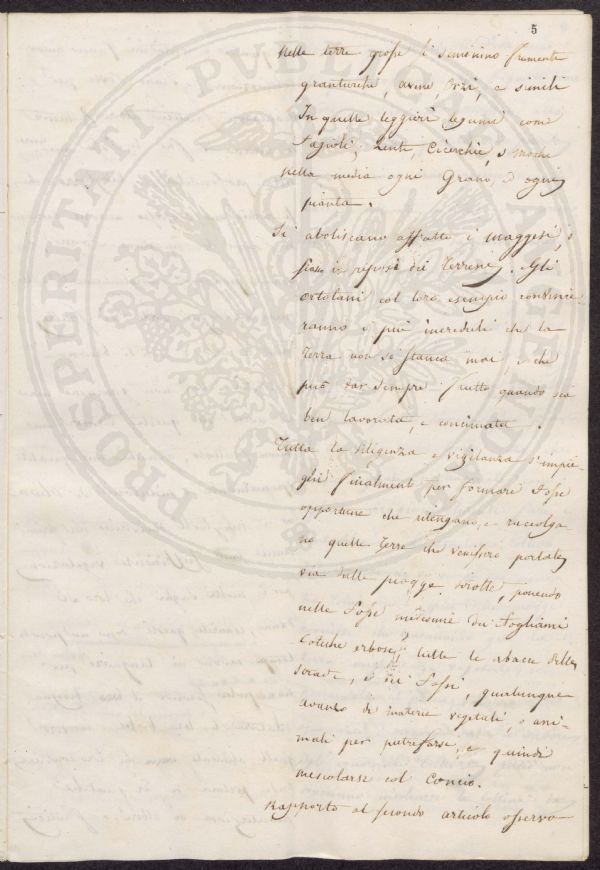 5
Nelle terre grosse si seminino frumenti
granturchi, avene, Orzi, e simili
In quelle leggieri legumi come
Fagioli, Lenti, Cicerchie, e mochi
nella media ogni Grano, ed ogni
pianta.
Si aboliscano affatto i maggesi, o
siano i riposi dei Terreni. Gli
ortolani col loro esempio convince
ranno i più increduli che la
Terra non si stanca mai, e che
può dar sempre frutto quando sia
ben lavorata, e concimata.
Tutta la diligenza e vigilanza s'impie-
ghi finalmente per formare Fosse
opportune che ritengano, e raccolga
no quelle Terre che venissero portate
via dalle piogge dirotte, ponendo
nelle Fosse medesime dei Fogliami
Cotiche erbose, tutte le
strade, e dei Fossi, qualunque
avanzo di materie vegetali, o ani-
mali per putrefarsi, e quindi
mescolarsi col Concio.
Rapporto al secondo articolo osservo
PROSPERITATI PUBLICAE AUGENDAE